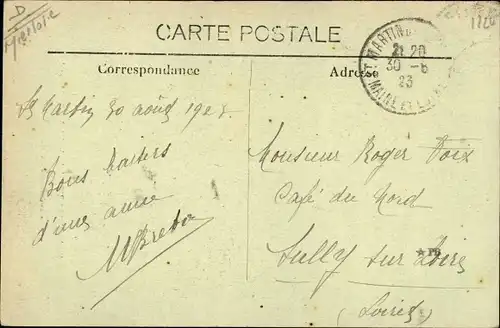 CARTE POSTALE
Correspondance
Adresse
ST MARTIN
21 20
30 -8
23
MAINE ET L
St Martin 30 août 192
Bons baisers
d'une amie
MBreto
Monsieur Roger
Café du Nord
Sully sur Loire
(Loiret)